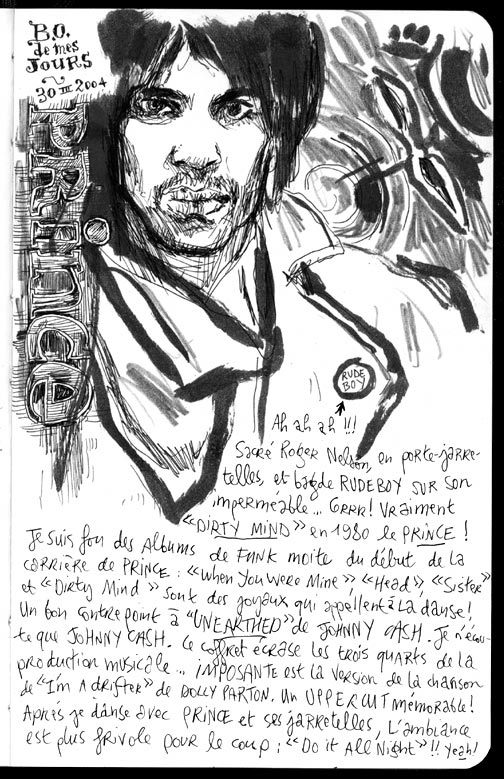 B.O.
de mes
JOURS
~
30 III 2004
PRiNCE
RUDE
BOY
Ah ah ah !!!
Sacré Roger Nelson, en porte-jarre-
telles, et badge RUDEBOY SUR son
imperméable... GRRR! Vraiment
"DIRTY MIND" en 1980 le PRINCE !
Je suis fou des Albums de FUNK moite du début de la
CARRIÈRE DE PRINCE : "When You Were Mine" "Head", "Sister"
et "Dirty Mind" sont des joyaux qui appellent à la danse !
Un bon contrepoint à "UNEARTHED" de JOHNNY CASH. Je n'écou-
te que JOHNNY CASH. Ce coffret écrase les trois quarts de la
production musicale... iMPOSANTE est la version de la chanson
de "I'm A drifter" de DOLLY PARTON. Un UPPERCUT mémorable !
Après je danse avec PRINCE et ses jarretelles, L'ambiance
est plus frivole pour le coup : "Do it All Night" !! Yeah !